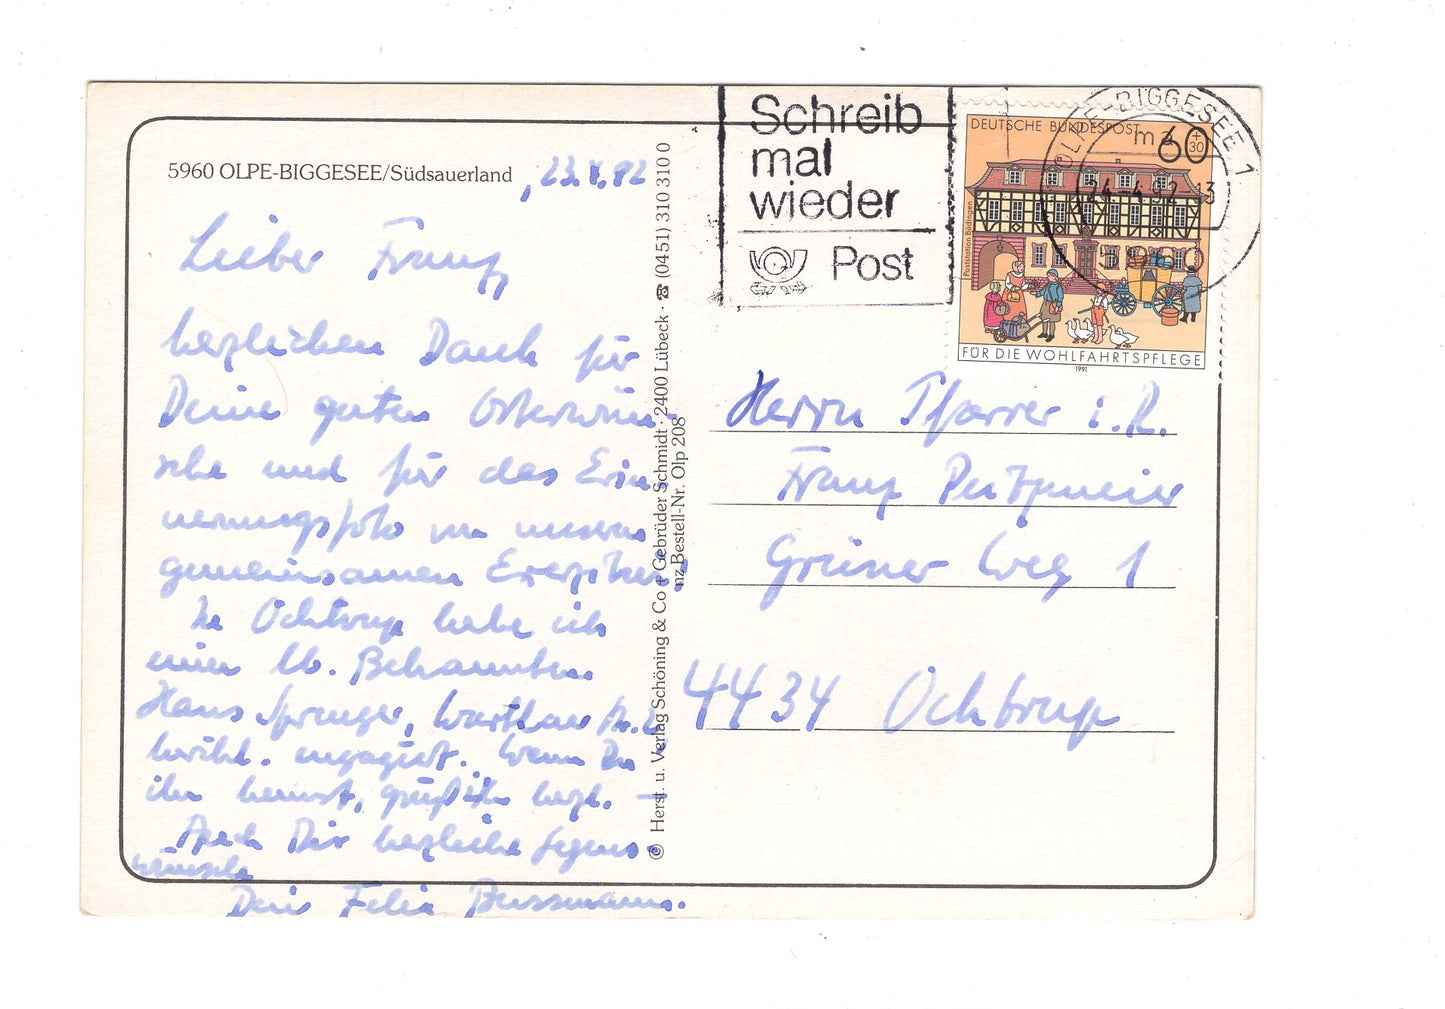 5960 OLPE-BIGGESEE/Südsauerland
, 23.4.92
Lieber Franz,
herzlichen Dank für
Deine guten Osterwün-
sche und für das Erin-
nerungsfoto von unseren
gemeinsamen Exerzitien!
In Ochtrup habe ich
einen lb. Bekannten
Hans Sprenger,
kirchl. engagiert. Wenn Du
ihn kennst, grüß ihn herzl. –
Auch Dir herzliche Segens-
wünsche
Dein Felix Bussmann.
© Herst. u. Verlag Schöning & Co + Gebrüder Schmidt · 2400 Lübeck · ☎ (0451) 310 310 0
nz Bestell-Nr. Olp 208
Schreib
mal
wieder
Post
DEUTSCHE BUNDESPOST
60
+
30
Poststation Büdingen
FÜR DIE WOHLFAHRTSPFLEGE
1991
OLPE-BIGGESEE 1
ma
24.-4.92-13
5960
Herrn Pfarrer i. R.
Franz Peitzmeier
Grüner Weg 1
4434 Ochtrup